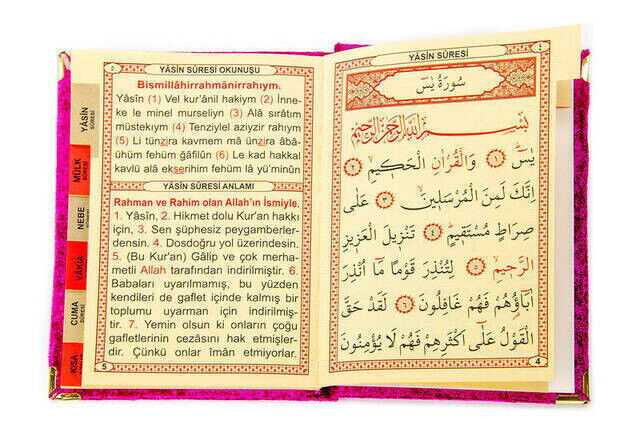 YÂSİN SÛRESİ
٤
سُورَةُ يٰسٓ
بِسْمِ اللّٰهِ الرَّحْمٰنِ الرَّحِيمِ
يٰسٓ ﴿١﴾ وَالْقُرْاٰنِ الْحَكِيمِ ﴿٢﴾
اِنَّكَ لَمِنَ الْمُرْسَلِينَ ﴿٣﴾ عَلٰى
صِرَاطٍ مُسْتَقِيمٍ ﴿٤﴾ تَنْزِيلَ الْعَزِيزِ
الرَّحِيمِ ﴿٥﴾ لِتُنْذِرَ قَوْمًا مَٓا اُنْذِرَ
اٰبَٓاؤُهُمْ فَهُمْ غَافِلُونَ ﴿٦﴾ لَقَدْ حَقَّ
الْقَوْلُ عَلٰٓى اَكْثَرِهِمْ فَهُمْ لَا يُؤْمِنُونَ
4
٥
YÂSİN SÛRESİ OKUNUŞU
Bismillâhirrahmânirrahıym.
Yâsîn (1) Vel kur'ânil hakiym (2) İnne-
ke le minel murseliyn (3) Alâ sırâtım
müstekıym (4) Tenziylel aziyzir rahıym
(5) Li tünzira kavmem mâ ünzira âbâ-
ühüm fehüm ğâfilûn (6) Le kad hakkal
kavlü alâ ekserihim fehüm lâ yü'minûn
YÂSİN SÛRESİ ANLAMI
Rahman ve Rahim olan Allah'ın İsmiyle.
1. Yâsîn, 2. Hikmet dolu Kur'an hakkı
için, 3. Sen şüphesiz peygamberler-
densin. 4. Dosdoğru yol üzerindesin.
5. (Bu Kur'an) Gâlip ve çok merha-
metli Allah tarafından indirilmiştir. 6.
Babaları uyarılmamış, bu yüzden
kendileri de gaflet içinde kalmış bir
toplumu uyarman için indirilmiş-
tir. 7. Yemin olsun ki onların çoğu
gafletlerinin cezasını hak etmişler-
dir. Çünkü onlar îmân etmiyorlar.
5
YÂSİN
SÛRESİ
MÜLK
SÛRESİ
NEBE
SÛRESİ
VÂKIA
CUMA
SÛRESİ
KISA